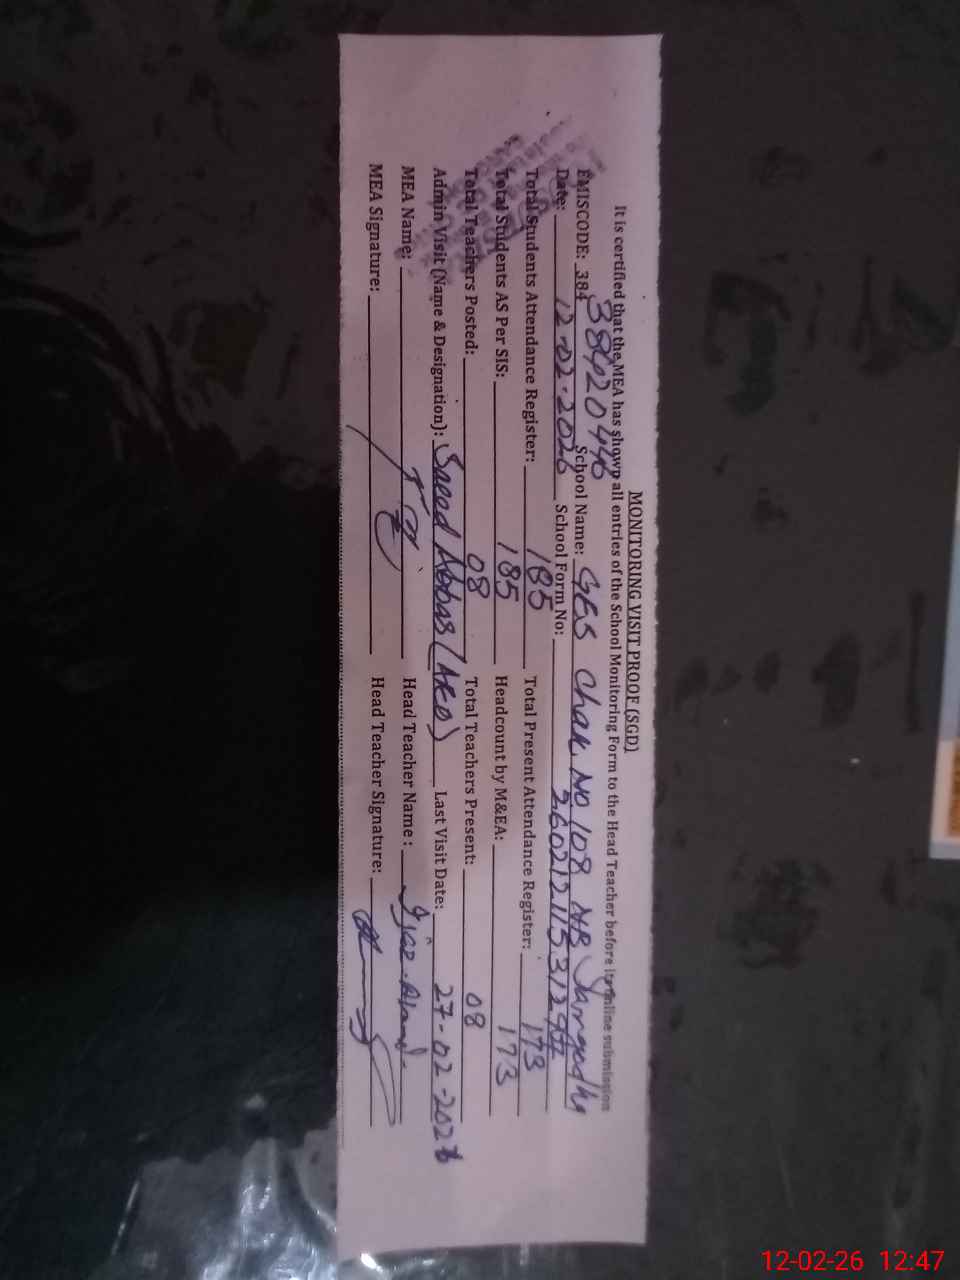 MONITORING VISIT PROOF (SGD)
It is certified that the MEA has shown all entries of the School Monitoring Form to the Head Teacher before its online submission
EMISCODE: 384 38420446 School Name: GES Chak No 108 NB Sargodha
Date: 12-02-2026 School Form No:
Total Students Attendance Register: 185 Total Present Attendance Register: 173
Total Students AS Per SIS: 185 Headcount by M&EA: 173
Total Teachers Posted: 08 Total Teachers Present: 08
Admin Visit (Name & Designation): Saeed Abbas (AEO) Last Visit Date: 27-02-2026
MEA Name: Head Teacher Name:
MEA Signature: Head Teacher Signature:
12-02-26 12:47